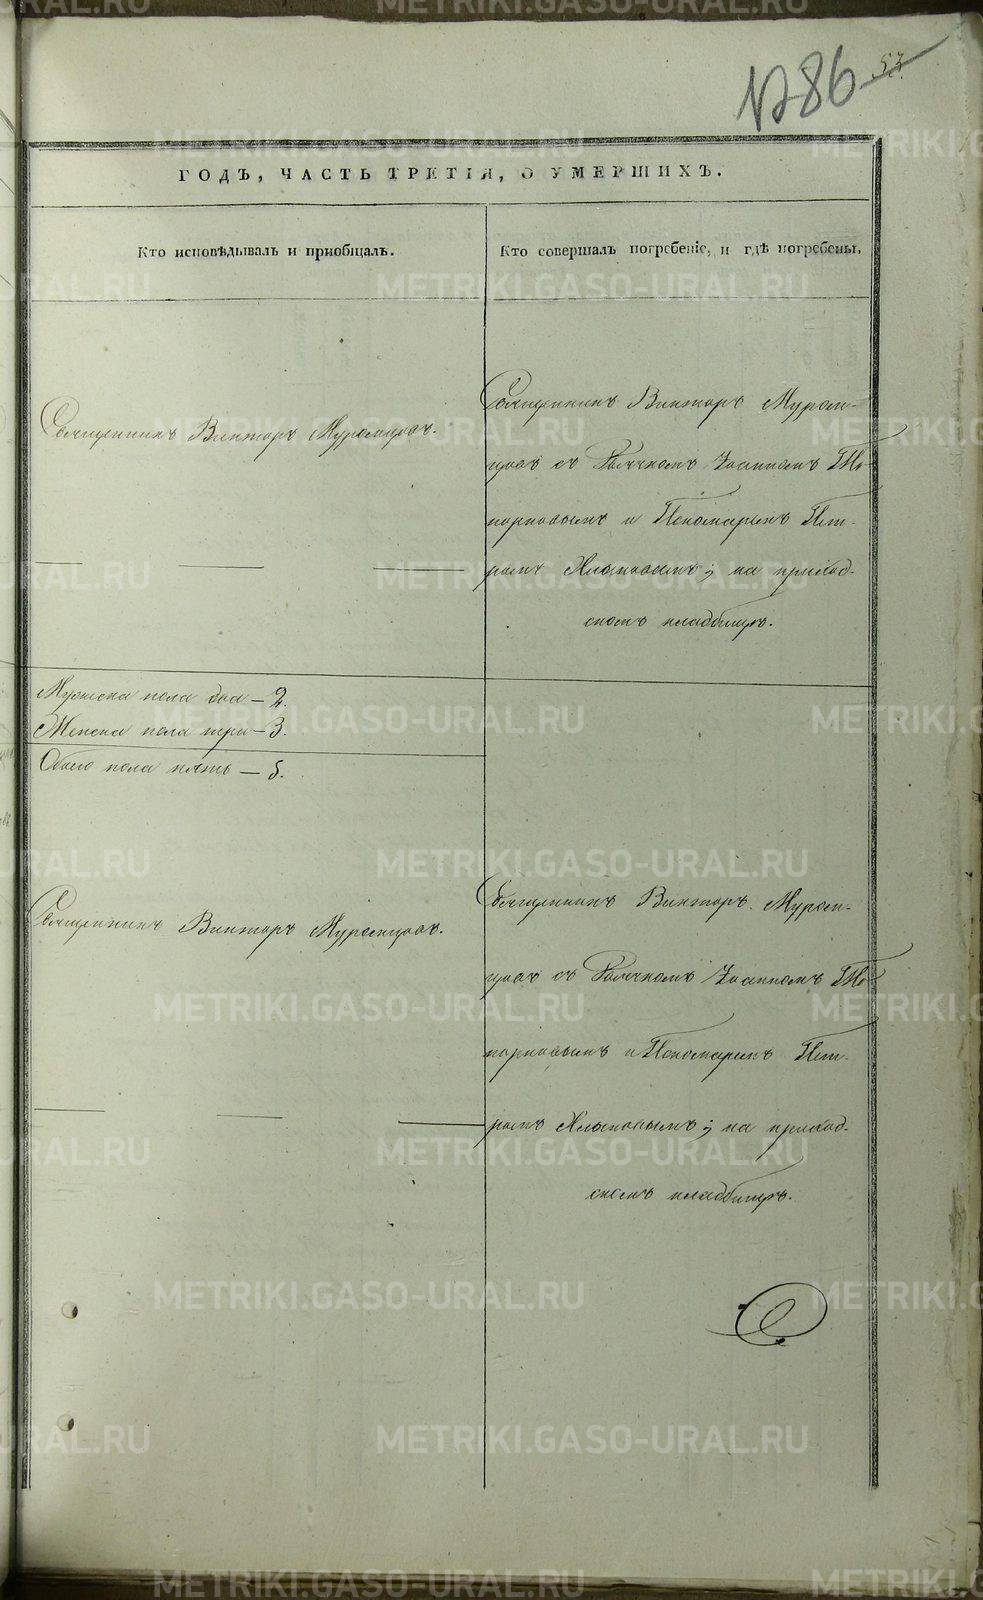 № 86
53
ГОДЪ, ЧАСТЬ ТРЕТІЯ, О УМЕРШИХЪ.
Кто исповѣдывалъ и пріобщалъ.
Кто совершалъ погребеніе, и гдѣ погребены.
Священникъ Викторъ Муромцовъ.
Священникъ Викторъ Муром-
цовъ съ Іоанномъ
и Пономаремъ Пет-
ромъ Хлыновымъ; на приход-
скомъ кладбищѣ.
Мужеска пола два – 2.
Женска пола три – 3.
Обоего пола пять – 5.
Священникъ Викторъ Муромцовъ.
Священникъ Викторъ Муром-
цовъ съ Іоанномъ
и Пономаремъ Пет-
ромъ Хлыновымъ; на приход-
скомъ кладбищѣ.
METRIKI.GASO-URAL.RU